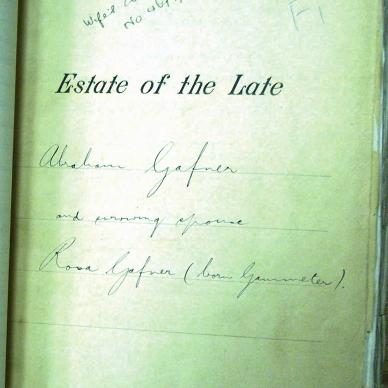 Wife's
No
F1
Estate of the Late
Abraham Gafner
and surviving spouse
Rosa Gafner (born Gammeter).